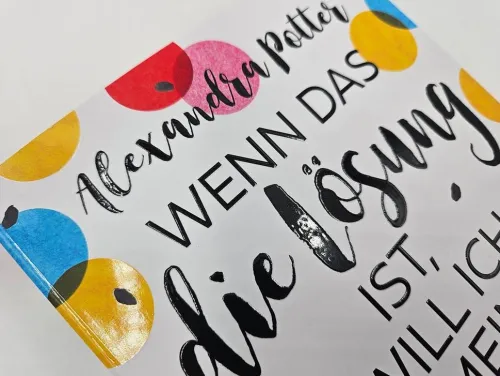 Alexandra Potter
WENN DAS
die lösung
IST,
WILL ICH